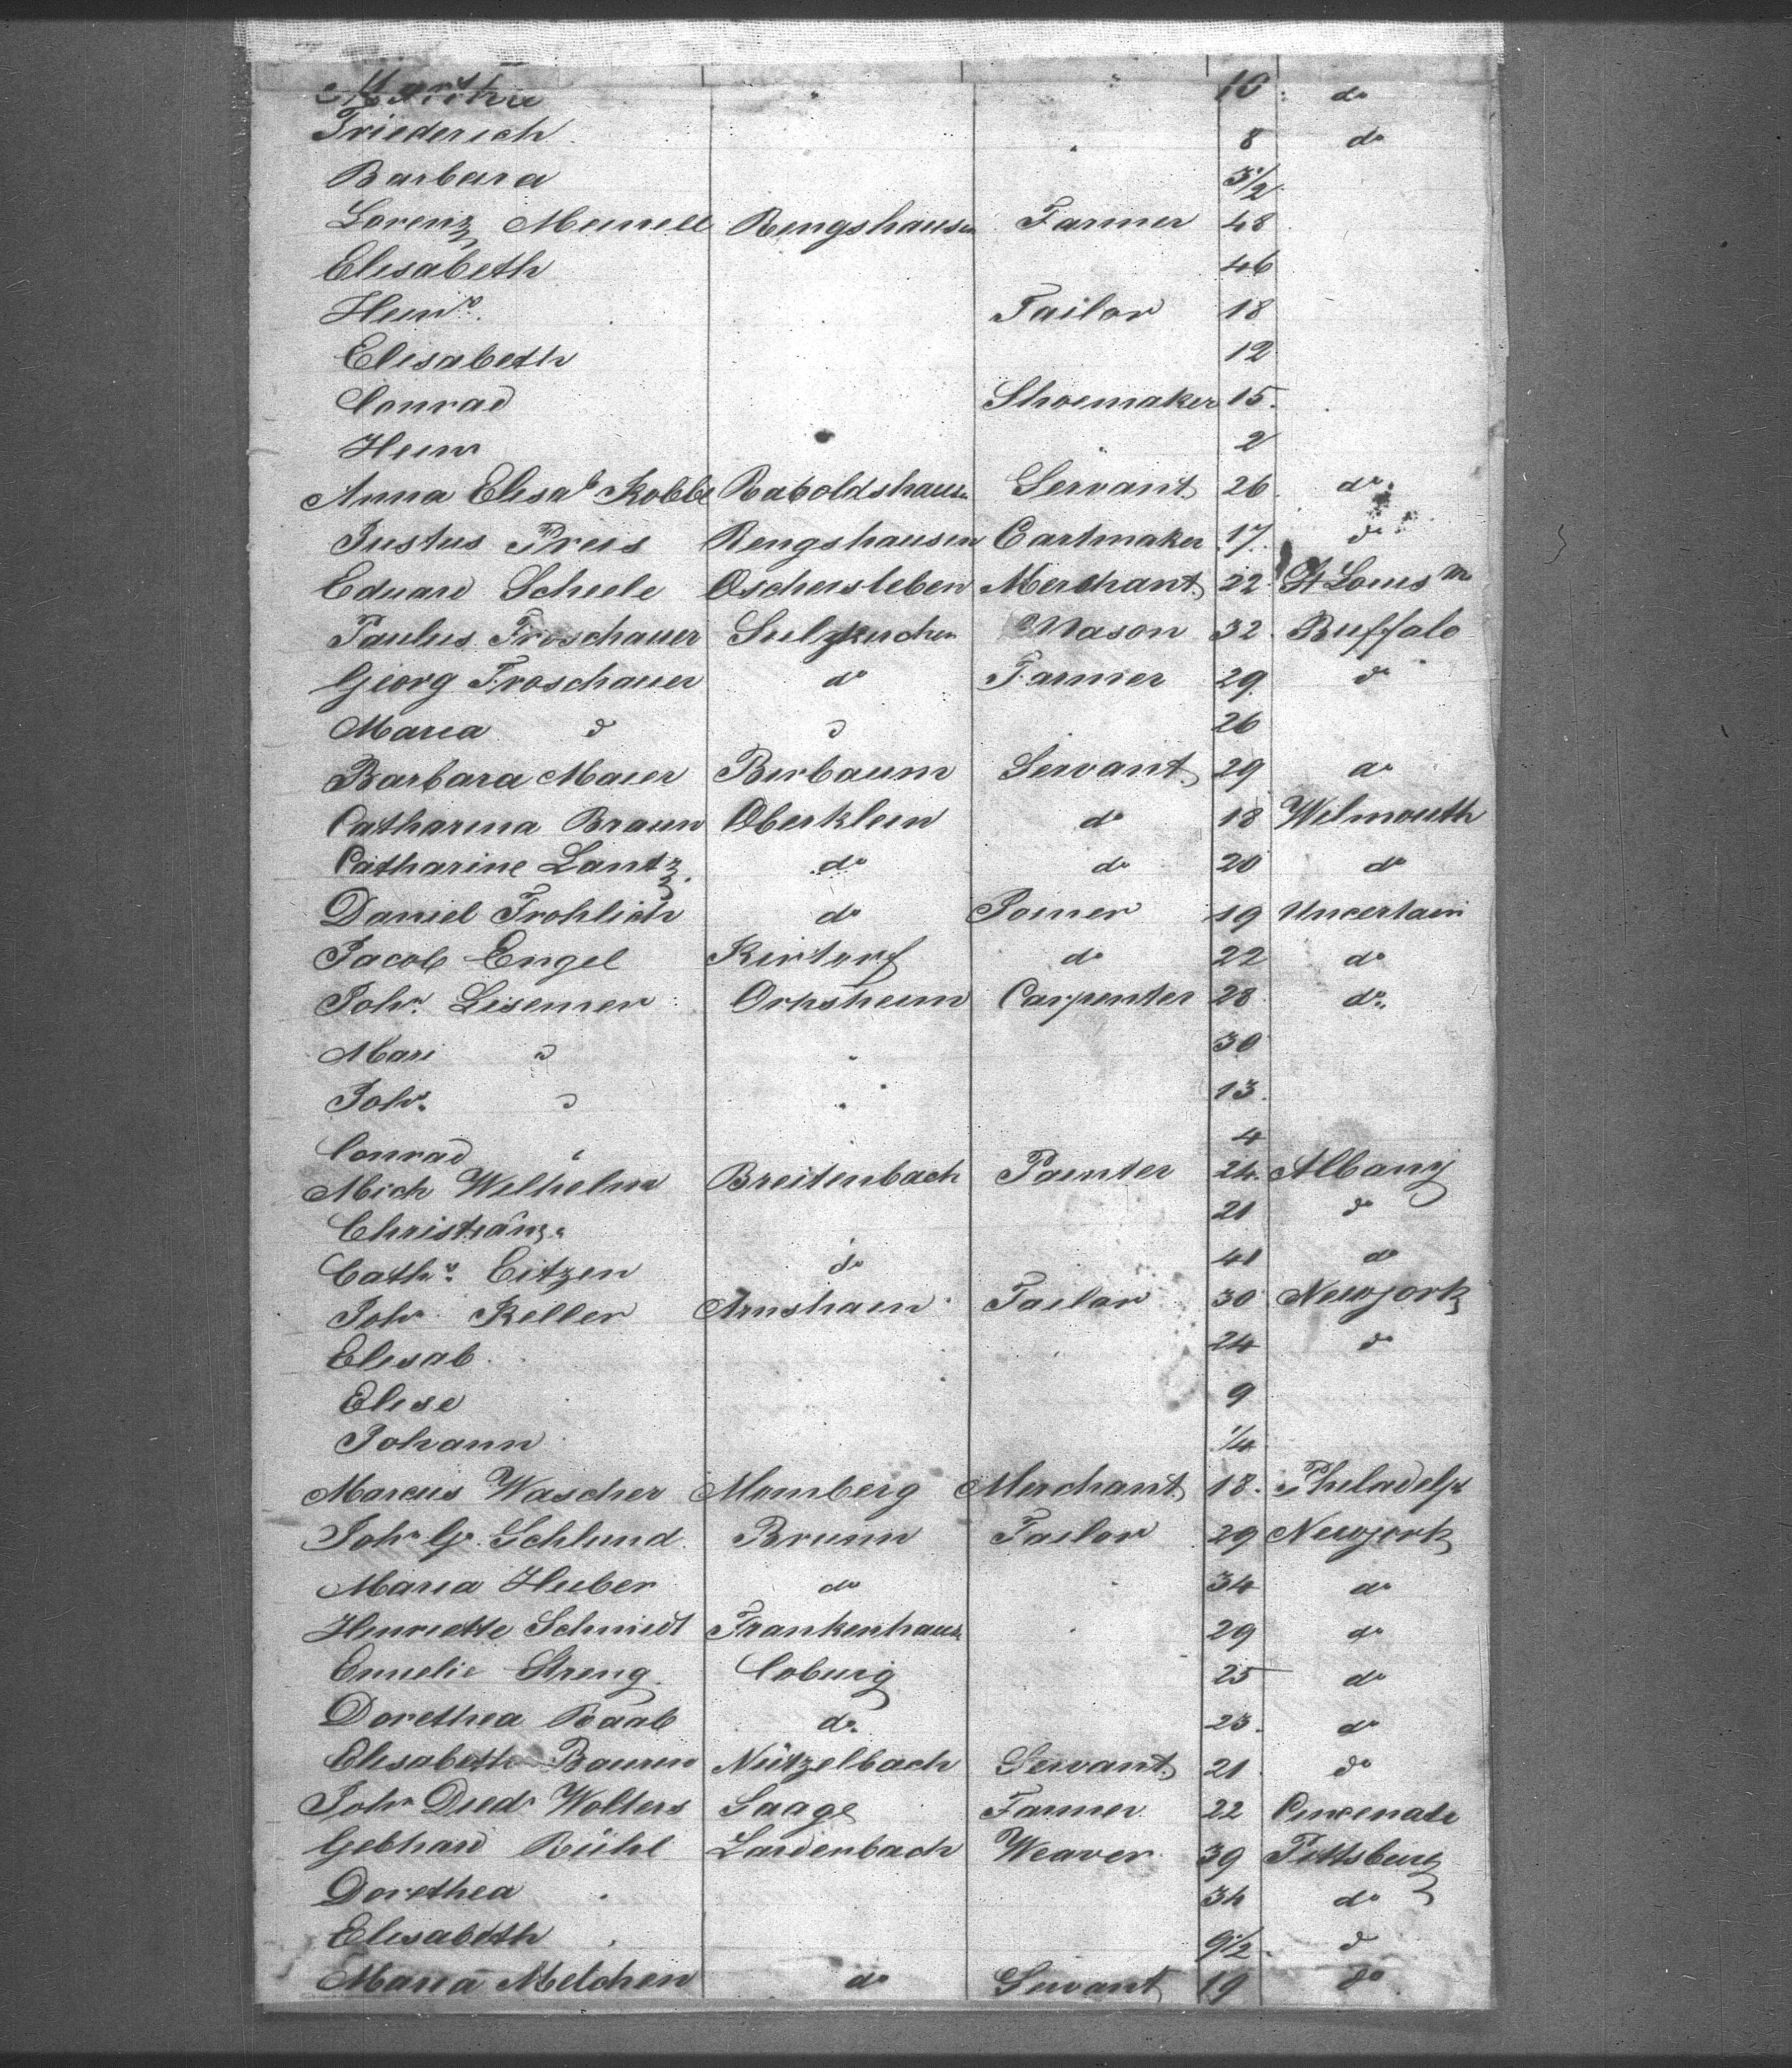 Martha " " 10 do
Friederich 8 do
Barbara 3 1/2
Lorenz Meinell Rengshausen Farmer 48
Elisabeth 46
Heinr. Tailor 18
Elisabeth 12
Conrad Shoemaker 15
Heinr 2
Anna Elisab Kobbe Raboldshausn Servant 26 do
Justus Preis Rengshausen Cartmaker 17 do
Eduard Scheele Oschersleben Merchant 22 St Louis
Paulus Froschauer Sulzkirchen Mason 32 Buffalo
Georg Froschauer do Farmer 29 do
Maria do do 26
Barbara Maier Birbaum Servant 29 do
Catharina Braun Oberklein do 18 Wilmouth
Catharine Lantz do do 20 do
Daniel Frohlich do Joiner 19 Uncertain
Jacob Engel Kirtorf do 22 do
Johs. Lisemer Carpenter 28 do
Mari do " 30
Johs. do " 13
Conrad " " 4
Mich Wilhelm Breitenbach Painter 24 Albany
21 do
Cath. Eitzen do 41 do
Johs Keller Arnshain Tailor 30 Newyork
Elisab 24 do
Elise 9
Johann 1/4
Marcus Wascher Momberg Merchant 18 Philadelp
Johs G. Schlund Brunn Tailor 29 Newyork
Maria Huber do 34 do
Henriette Schmidt Frankenhausn 29 do
Emelie Streng Coburg 25 do
Dorethea Raab do 23 do
Elisabeth Bauren Nützelbach Servant 21 do
Joh Died Wolters Saage Farmer 22 Cincenati
Gebhard Rühl Lardenbach Weaver 39 Pittsburg
Dorethea " 34 do
Elisabeth " 9 1/2 do
Maria Melchen do Servant 19 do